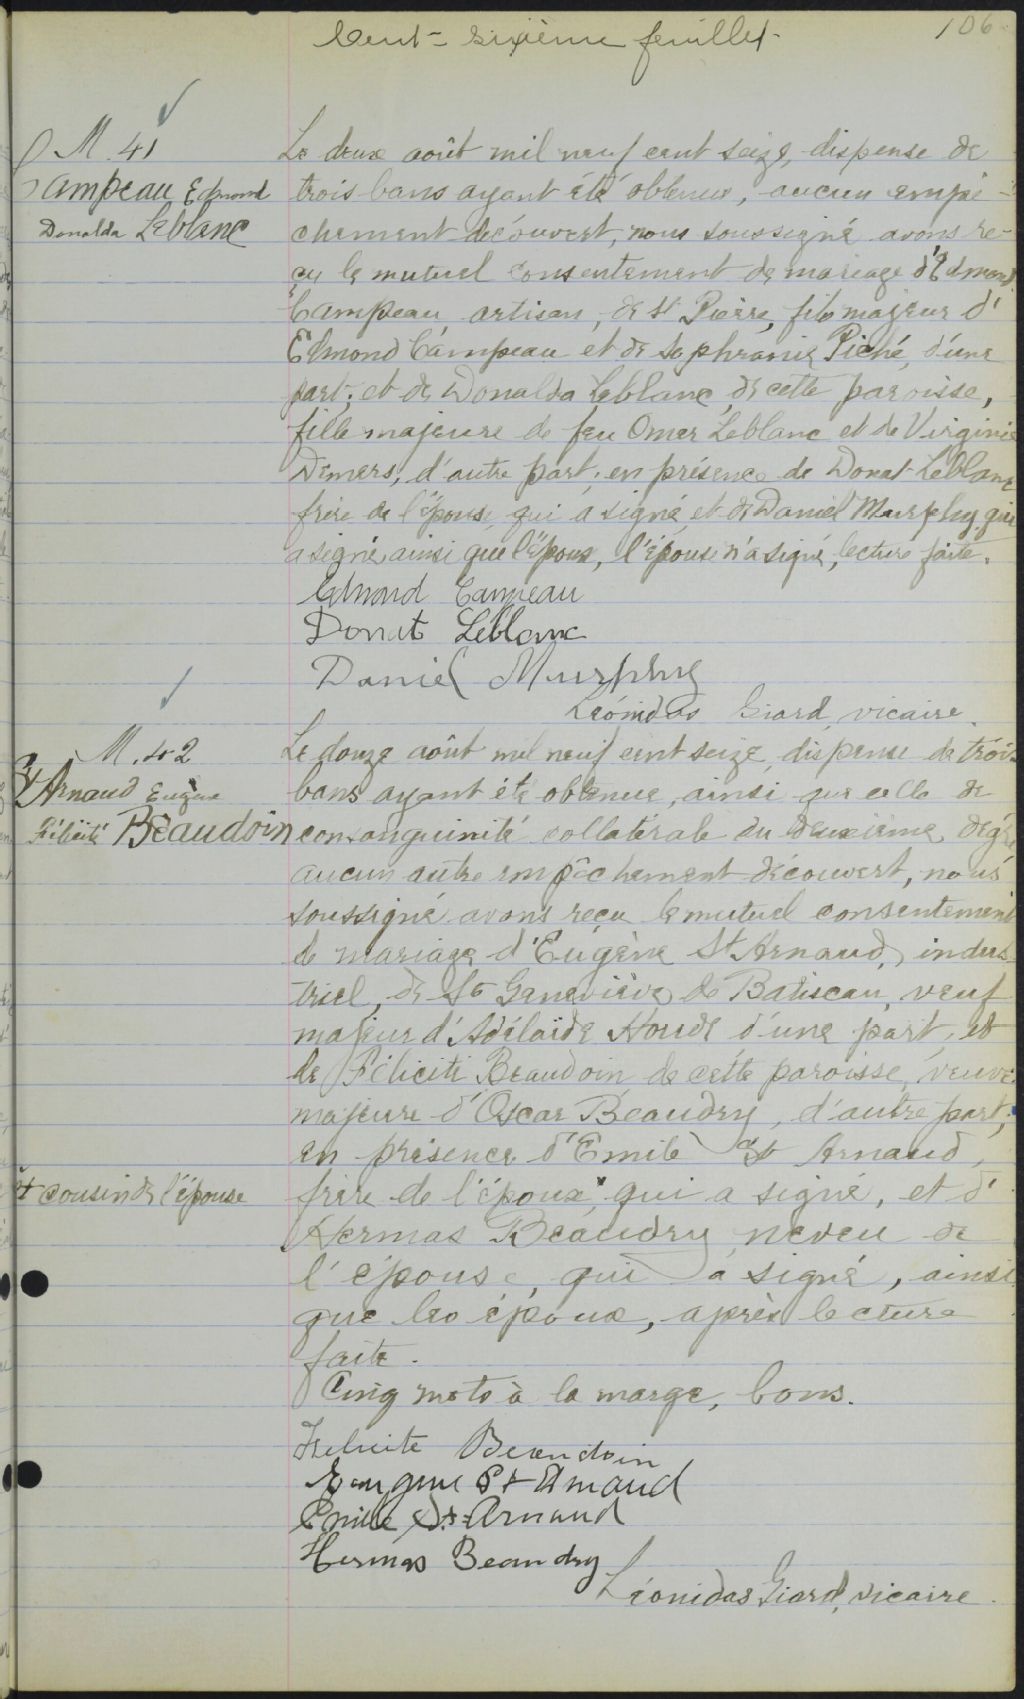 Cent-sixième feuillet
106
M. 41
Campeau Edmond
Donalda Leblanc
Le deux août mil neuf cent seize, dispense de
trois bans ayant été obtenue, aucun empê-
chement découvert, nous soussigné avons re-
çu le mutuel consentement de mariage d'Edmond
Campeau artisan, de St Pierre, fils majeur d'
Edmond Campeau et de Sophranie Piché, d'une
part; et de Donalda Leblanc, de cette paroisse,
fille majeure de feu Omer Leblanc et de Virginie
Demers, d'autre part; en présence de Donat Leblanc
frère de l'épouse, qui a signé, et de Daniel Murphy qui
a signé ainsi que l'époux, l'épouse n'a signé, lecture faite.
Edmond Campeau
Donat Leblanc
Daniel Murphy
Léonidas Giard, vicaire.
M. 42
St Arnaud Eugène
Félicité Beaudoin
Le douze août mil neuf cent seize, dispense de trois
bans ayant été obtenue, ainsi que celle de
consanguinité collatérale du deuxième degré
aucun autre empêchement découvert, nous
soussigné avons reçu le mutuel consentement
de mariage d'Eugène St Arnaud, indus-
triel, de Ste Geneviève de Batiscan, veuf
majeur d'Adélaïde Houde d'une part, et
de Félicité Beaudoin de cette paroisse, veuve
majeure d'Oscar Beaudry, d'autre part;
en présence d'Emile St Arnaud,
+ cousin de l'épouse
frère de l'époux + qui a signé, et d'
Hermas Beaudry, neveu de
l'épouse, qui a signé, ainsi
que les époux, après lecture
faite.
Cinq mots à la marge, bons.
Félicité Beaudoin
Eugene St Arnaud
Emile St-Arnaud
Hermas Beaudry
Léonidas Giard, vicaire.